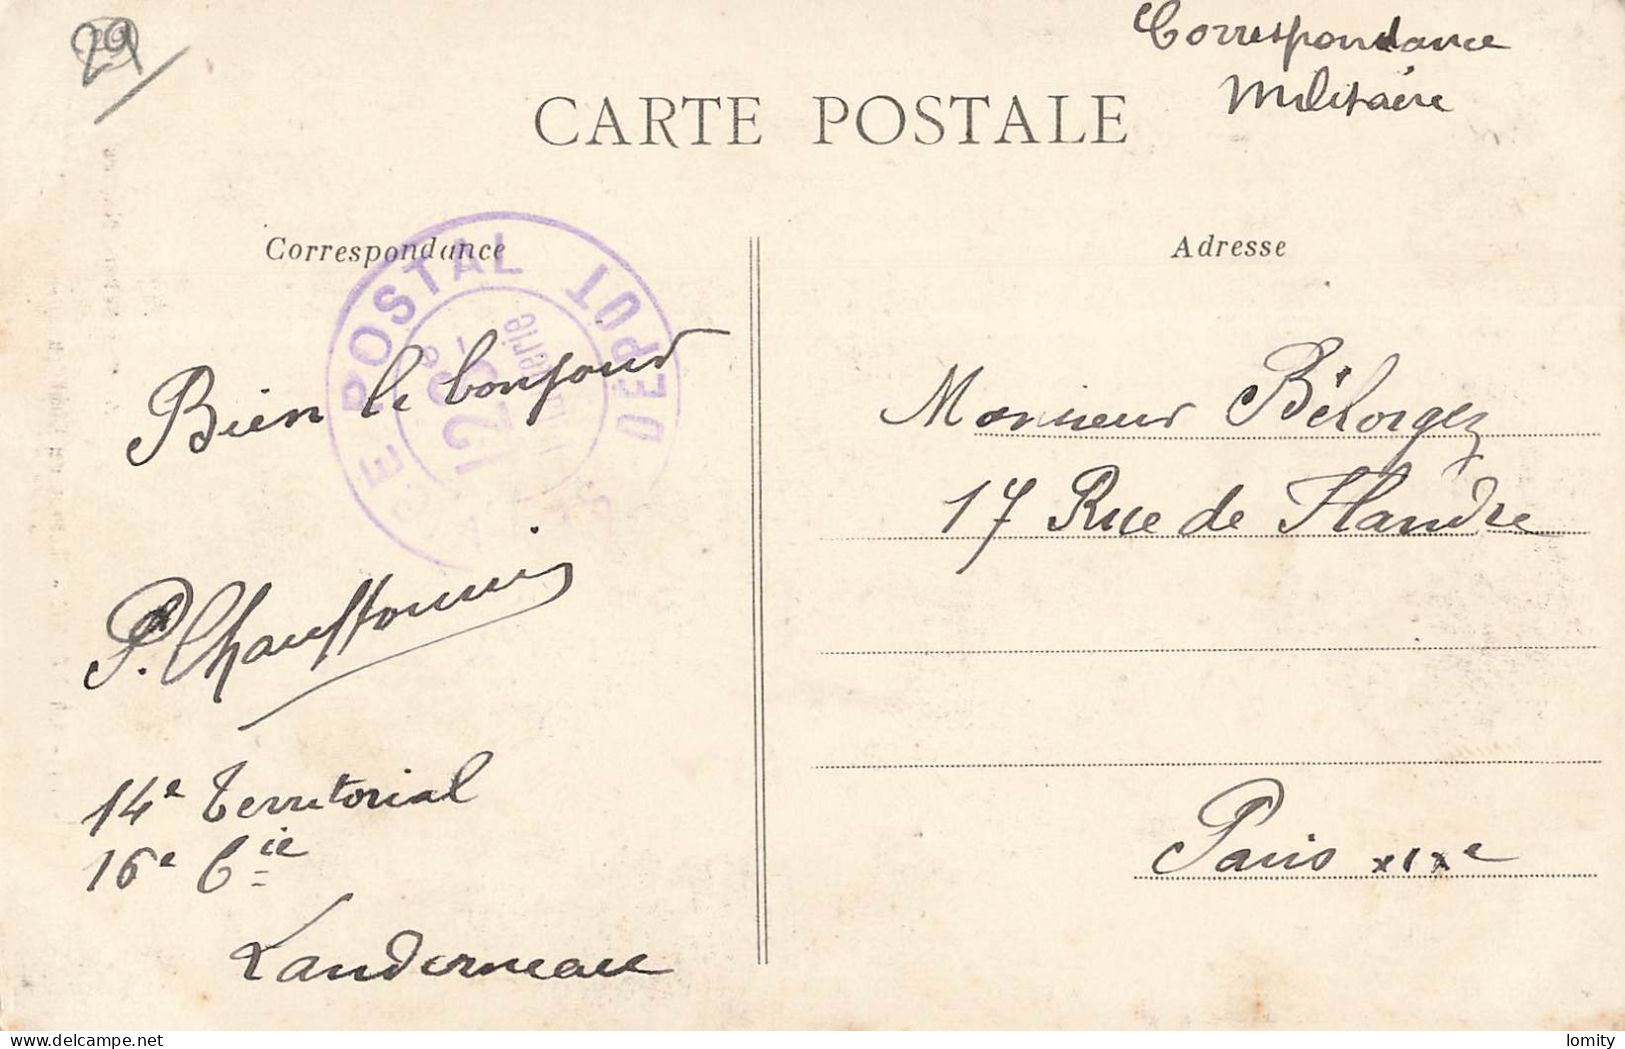 29
Correspondance
Militaire
CARTE POSTALE
Correspondance
Adresse
POSTAL DEPOT
Bien le bonjour
14e Territorial
16e Cie
Landerneau
Monsieur Bélorgey
17 Rue de Flandre
Paris XIXe
delcampe.net
lomity